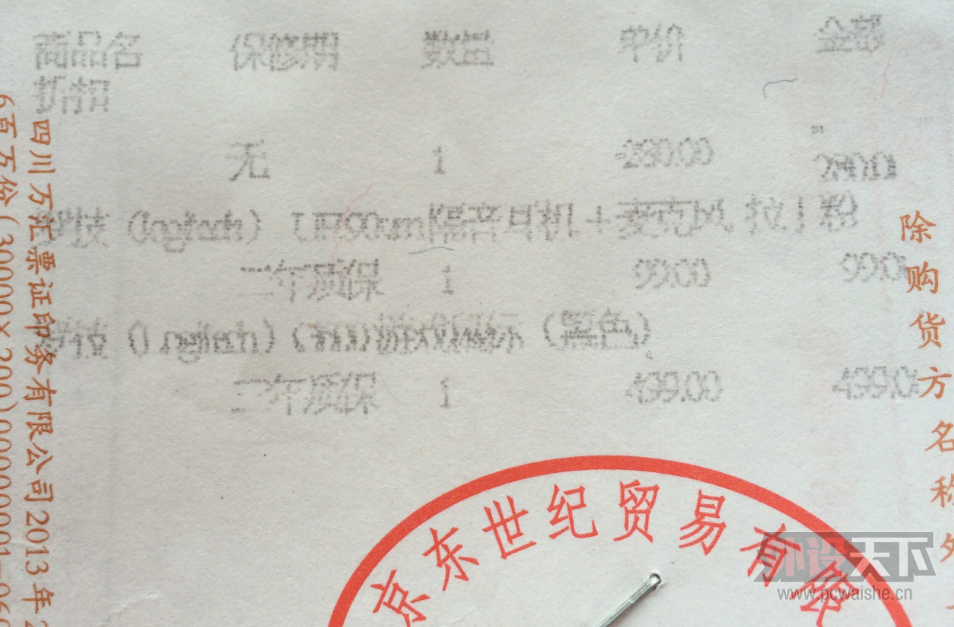 商品名 保修期 数量 单价 金额
折扣
无 1 -280.00 -
280.00
罗技（logitech） UE900vm隔音耳机＋麦克风 拉丁粉
二年质保 1 99.00 99.00
罗技（Logitech）G500游戏鼠标（黑色）
二年质保 1 499.00 499.00
四川万汇票证印务有限公司2013年
6百万份(30000×200)00000001-06
除购货方名称外
京东世纪贸易有限
外设天下
www.pcwaishe.cn